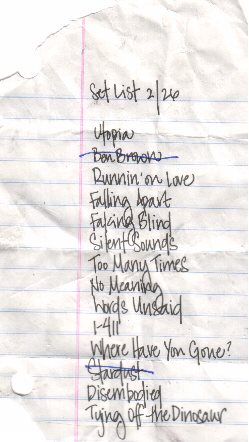 Set List 2/26
Utopia
Ben Brown
Runnin' on Love
Falling Apart
Faking Blind
Silent Sounds
Too Many Times
No Meaning
Words Unsaid
1-411
Where Have You Gone?
Stardust
Disembodied
Tying Off the Dinosaur